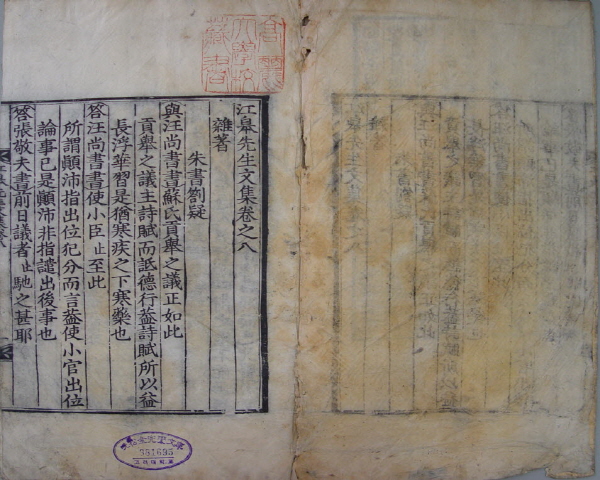 江皐先生文集卷之八
雜著
朱書劄疑
與汪尚書書蘇氏貢舉之議正如此
貢舉之議主詩賦而詆德行益詩賦所以益
長浮華習是猶寒疾之下寒藥也
答汪尚書書使小臣止至此
所謂顚沛指出位犯分而言葢使小官出位
論事已是顚沛非指譴出後事也
答張敬夫書前日議者止馳之甚耶
高麗大學校藏書
331635